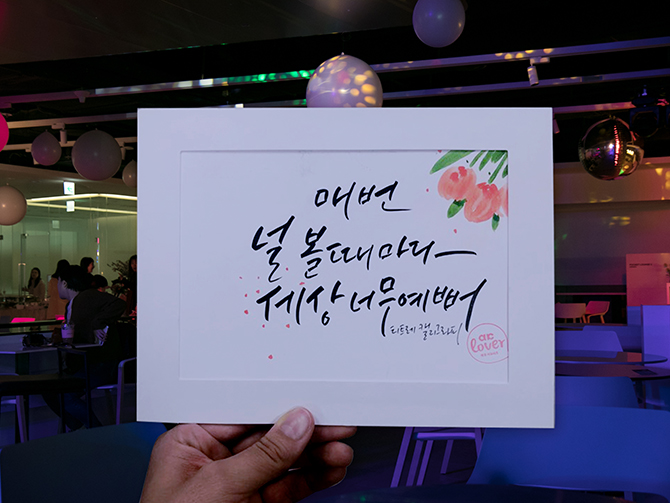 매번
널 볼때마다
세상 너무 예뻐
티트레 캘리그라피
lover